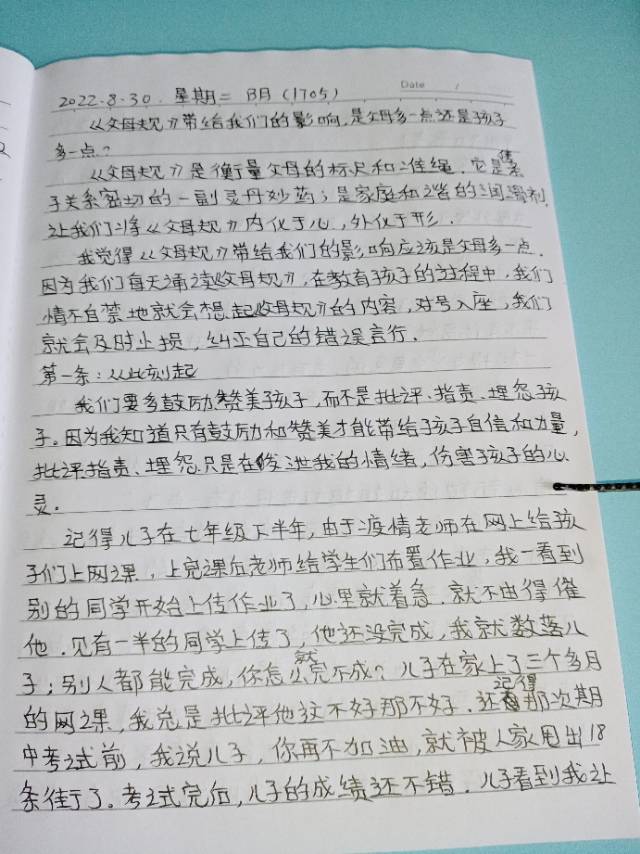 Date /
2022.8.30. 星期二 B月(1705)
《父母规》带给我们的影响,是父母多一点还是孩子
多一点?
《父母规》是衡量父母的标尺和准绳.它是亲
子关系密切的一副灵丹妙药;是家庭和谐的润滑剂.
让我们将《父母规》内化于心,外化于形.
我觉得《父母规》带给我们的影响应该是父母多一点.
因为我们每天诵读《父母规》,在教育孩子的过程中,我们
情不自禁地就会想起《父母规》的内容,对号入座,我们
就会及时止损,纠正自己的错误言行.
第一条:从此刻起
我们要多鼓励赞美孩子,而不是批评、指责、埋怨孩
子。因为我知道只有鼓励和赞美才能带给孩子自信和力量,
批评指责、埋怨只是在发泄我的情绪,伤害孩子的心
灵。
记得儿子在七年级下半年,由于疫情老师在网上给孩
子们上网课,上完课后老师给学生们布置作业,我一看到
别的同学开始上传作业了,心里就着急.就不由得催
他.见有一半的同学上传了,他还没完成,我就数落儿
子;别人都能完成,你怎么就完不成?儿子在家上了三个多月
的网课,我总是批评他这不好那不好.还记得那次期
中考试前,我说儿子,你再不加油,就被人家甩出18
条街了。考试完后,儿子的成绩还不错.儿子看到我让